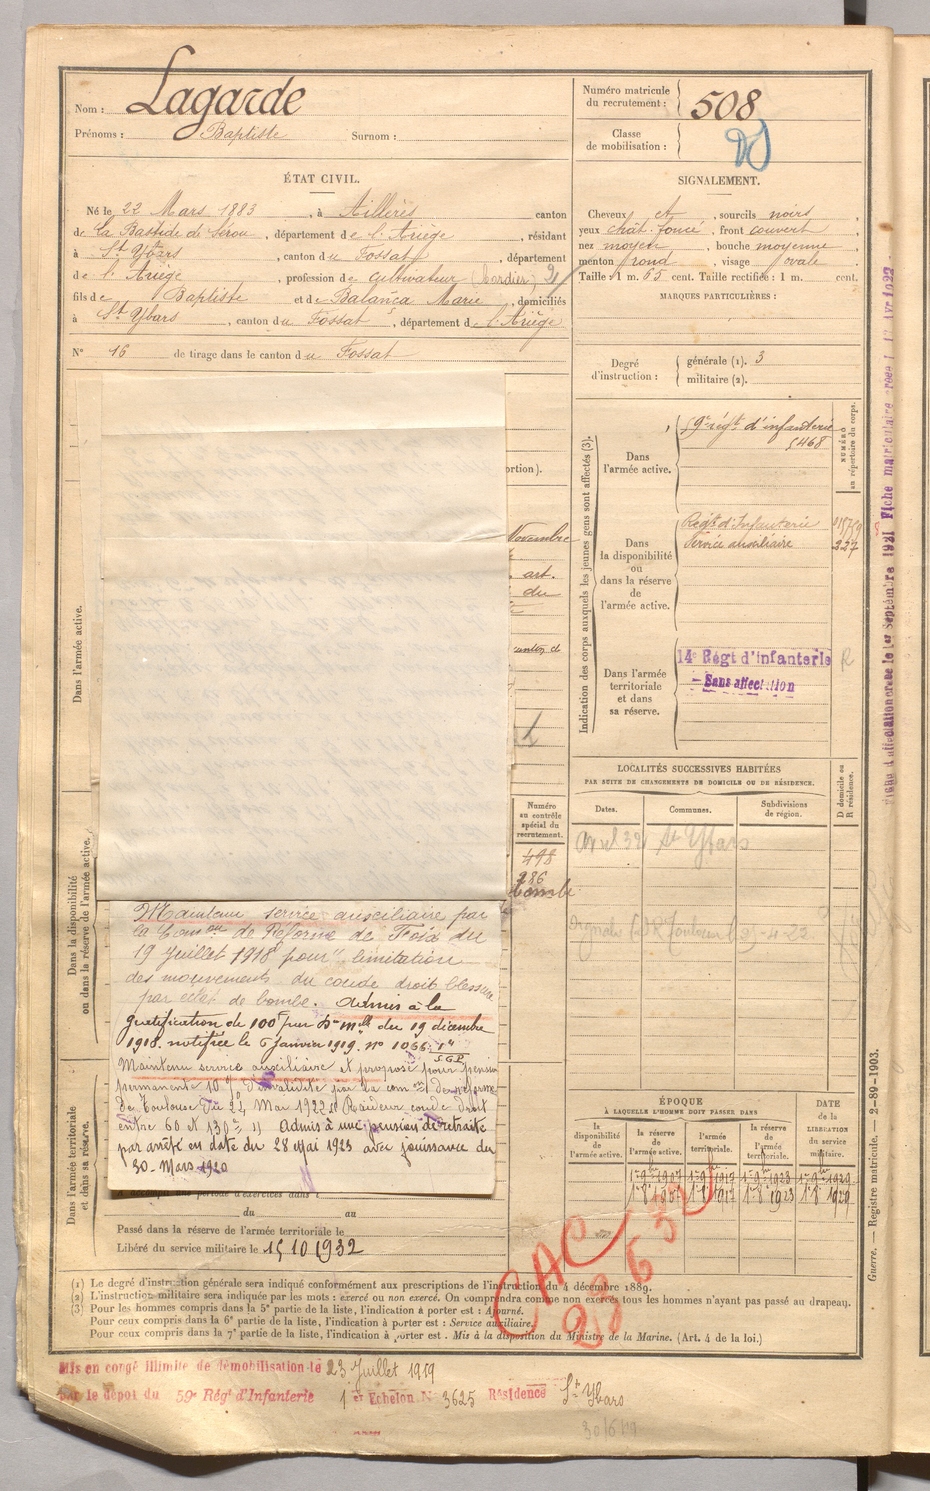 Nom : Lagarde
Prénoms : Baptiste Surnom :
Numéro matricule du recrutement : 508
Classe de mobilisation :
ÉTAT CIVIL.
Né le 22 Mars 1883, à Aillères canton
de La Bastide de Sérou, département de l'Ariège, résidant
à St Ybars, canton du Fossat, département
de l'Ariège, profession de cultivateur (bordier)
fils de Baptiste et de Balança Marie, domiciliés
à St Ybars, canton du Fossat, département de l'Ariège
N° 16 de tirage dans le canton du Fossat
SIGNALEMENT.
Cheveux et, sourcils noirs
yeux chât. foncé, front couvert
nez moyen, bouche moyenne
menton rond, visage ovale
Taille : 1 m. 65 cent. Taille rectifiée : 1 m. cent.
MARQUES PARTICULIÈRES :
Degré d'instruction : générale (1). 3
militaire (2).
Indication des corps auxquels les jeunes gens sont affectés (3).
NUMÉRO au répertoire du corps.
Dans l'armée active.
59e régt d'infanterie
5468
Dans la disponibilité ou dans la réserve de l'armée active.
Régt d'Infanterie
Service auxiliaire 227
Dans l'armée territoriale et dans sa réserve.
14e Régt d'infanterie
Sans affectation
R
ortion).
Novembre
art.
du
Dans l'armée active.
Dans la disponibilité ou dans la réserve de l'armée active.
Dans l'armée territoriale et dans sa réserve.
Numéro au contrôle spécial du recrutement.
498
286
LOCALITÉS SUCCESSIVES HABITÉES
PAR SUITE DE CHANGEMENTS DE DOMICILE OU DE RÉSIDENCE.
Dates. Communes. Subdivisions de région. D domicile ou R résidence.
Avril 32 St Ybars
Maintenu service auxiliaire par
la Comon de Réforme de Foix du
19 Juillet 1918 pour "limitation
des mouvements du coude droit blessure
par éclat de bombe. Admis à la
gratification de 100f par Don mlle du 19 décembre
1918. notifiée le 6 Janvier 1919. n° 1066
Maintenu service auxiliaire et proposé pour pension
permanente 10 % d'invalidité par la comon de réforme
de Toulouse du 24 Mar 1922 Raideur coude droit
entre 60 et 130° Admis à une pension de retraite
par arrêté en date du 28 Mai 1923 avec jouissance du
30. Mars 1920
ÉPOQUE
À LAQUELLE L'HOMME DOIT PASSER DANS
la disponibilité de l'armée active. la réserve de l'armée active. l'armée territoriale. la réserve de l'armée territoriale. DATE de la LIBÉRATION du service militaire.
1er 9bre 1907 1er 9bre 1917 1er 9bre 1923 1er 9bre 1929
1er 8 1907 1er 8 1917 1er 8 1923 1er 8 1929
du au
Passé dans la réserve de l'armée territoriale le
Libéré du service militaire le 15 10 1932
CAC
(1) Le degré d'instruction générale sera indiqué conformément aux prescriptions de l'instruction du 4 décembre 1889.
(2) L'instruction militaire sera indiquée par les mots : exercé ou non exercé. On comprendra comme non exercés tous les hommes n'ayant pas passé au drapeau.
(3) Pour les hommes compris dans la 5e partie de la liste, l'indication à porter est : Ajourné.
Pour ceux compris dans la 6e partie de la liste, l'indication à porter est : Service auxiliaire.
Pour ceux compris dans la 7e partie de la liste, l'indication à porter est : Mis à la disposition du Ministre de la Marine. (Art. 4 de la loi.)
Mis en congé illimité de démobilisation le 23 Juillet 1919
par le dépôt du 59e Régt d'Infanterie 1er Echelon N° 3625 Résidence St Ybars
Guerre. — Registre matricule. — 2-89-1903.